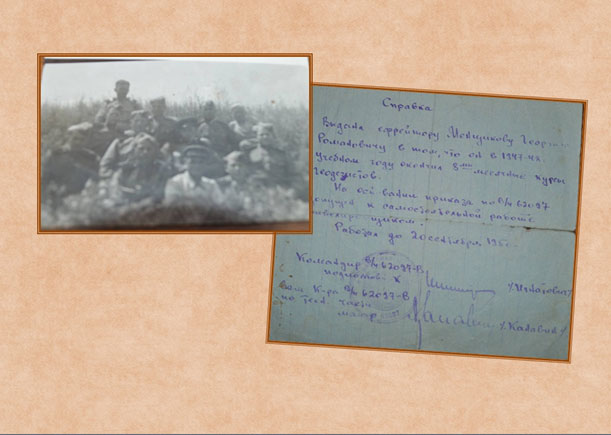 Справка
Выдана ефрейтору Менщикову Георгию
Романовичу в том, что он в 1947-48
учебном году окончил 8ми месячные курсы
Геодезистов.
На основании приказа по В/ч 62097
допущен к самостоятельной работе
Работал до 20 сентября 195
Командир В/ч 62097-В
подполковник /Игнатович/
Зам. К-ра В/ч 62097-В
по тех. части
майор